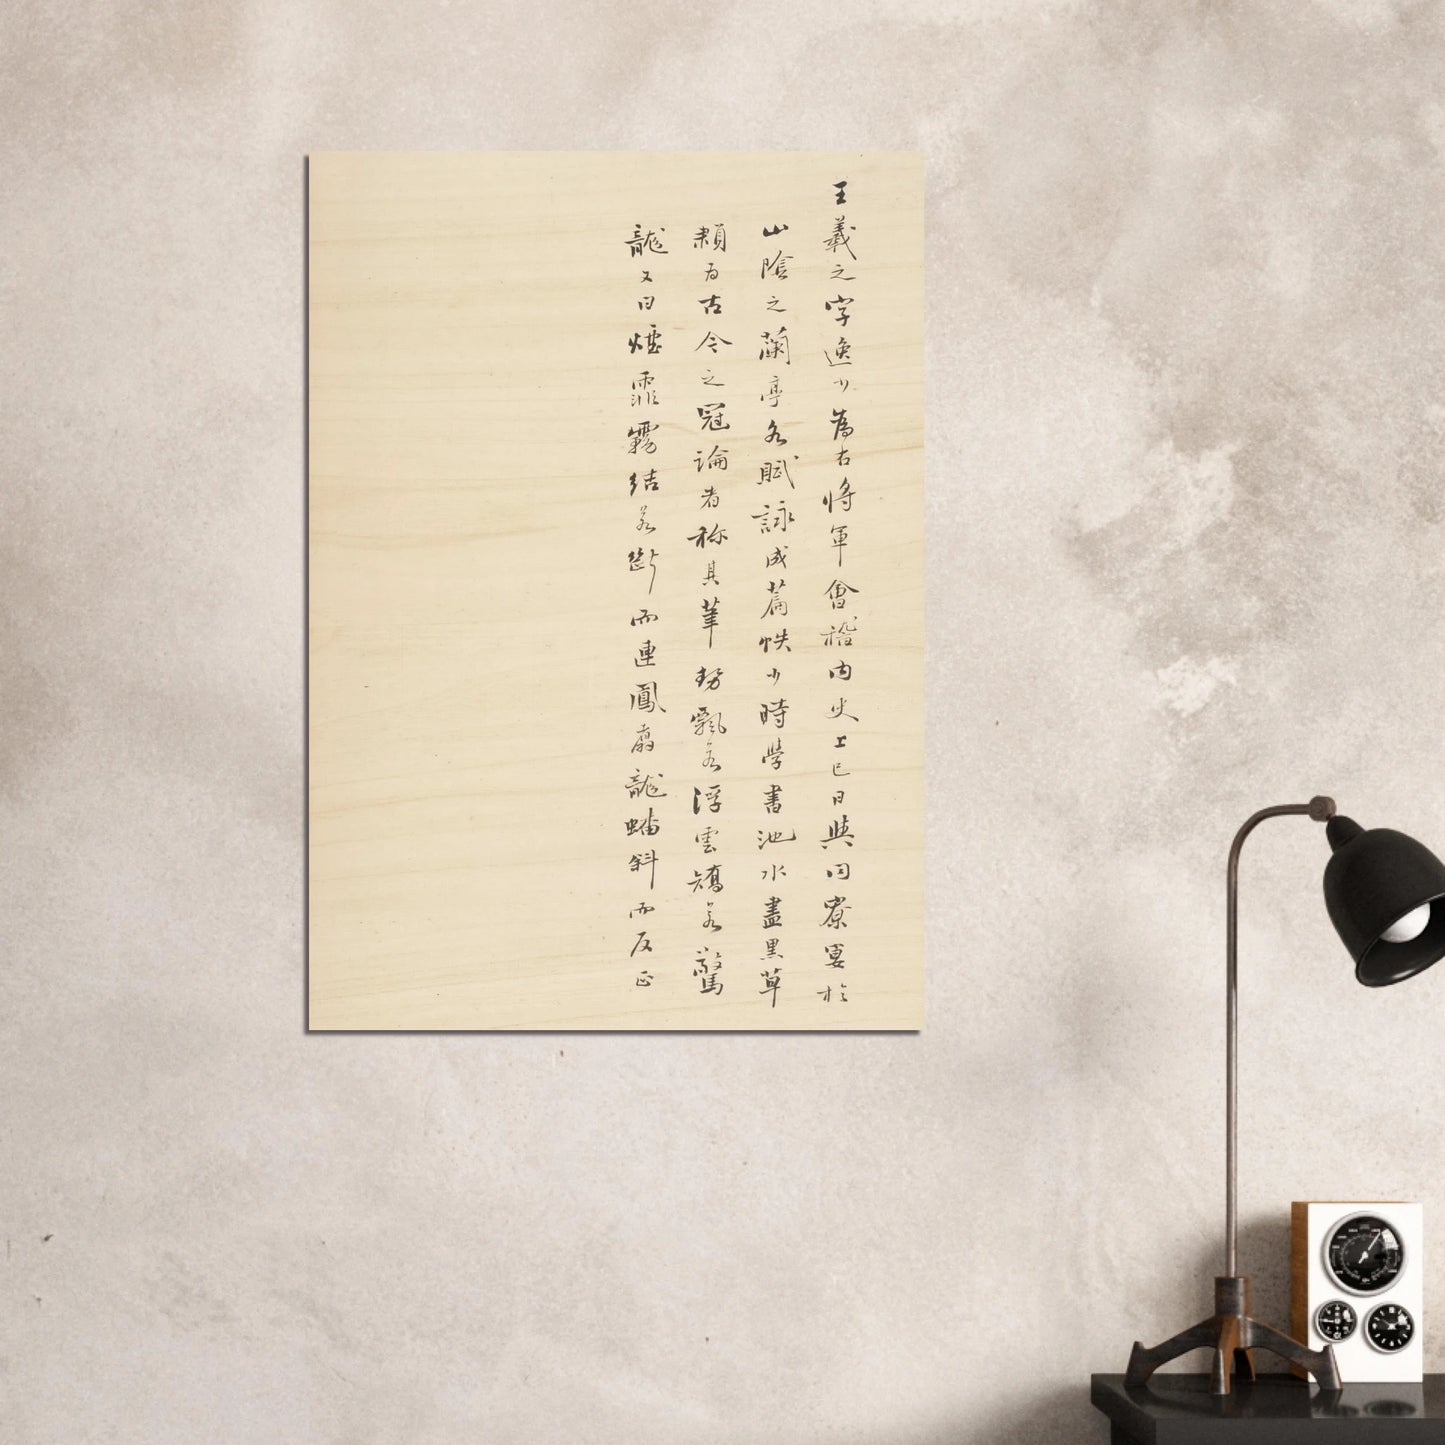 王羲之字逸少為右將軍會稽內史上巳日與同寮宴於
山陰之蘭亭各賦詠成篇帙少時學書池水盡黑草
隸為古今之冠論者称其筆勢飄若浮雲矯若驚
龍又曰煙霏霧結若斷而連鳳翥龍蟠斜而反正